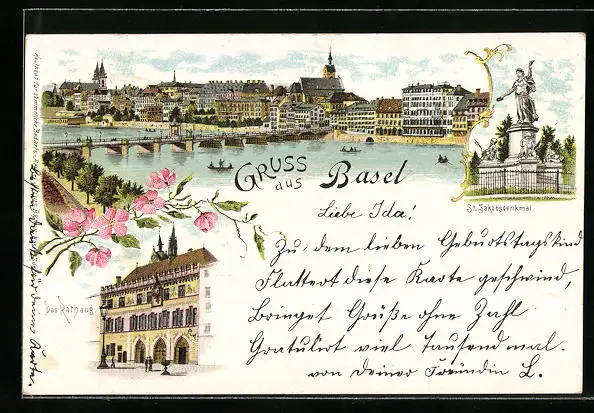 GRUSS
aus Basel
St. Jakobsdenkmal.
Das Rathaus
Liebe Ida!
Zu dem lieben Geburtstagskind
Flattert diese Karte geschwind,
Bringet Grüße ohne Zahl
Gratuliert viel Tausend mal.
von deiner Freundin L.
für deine Karte.